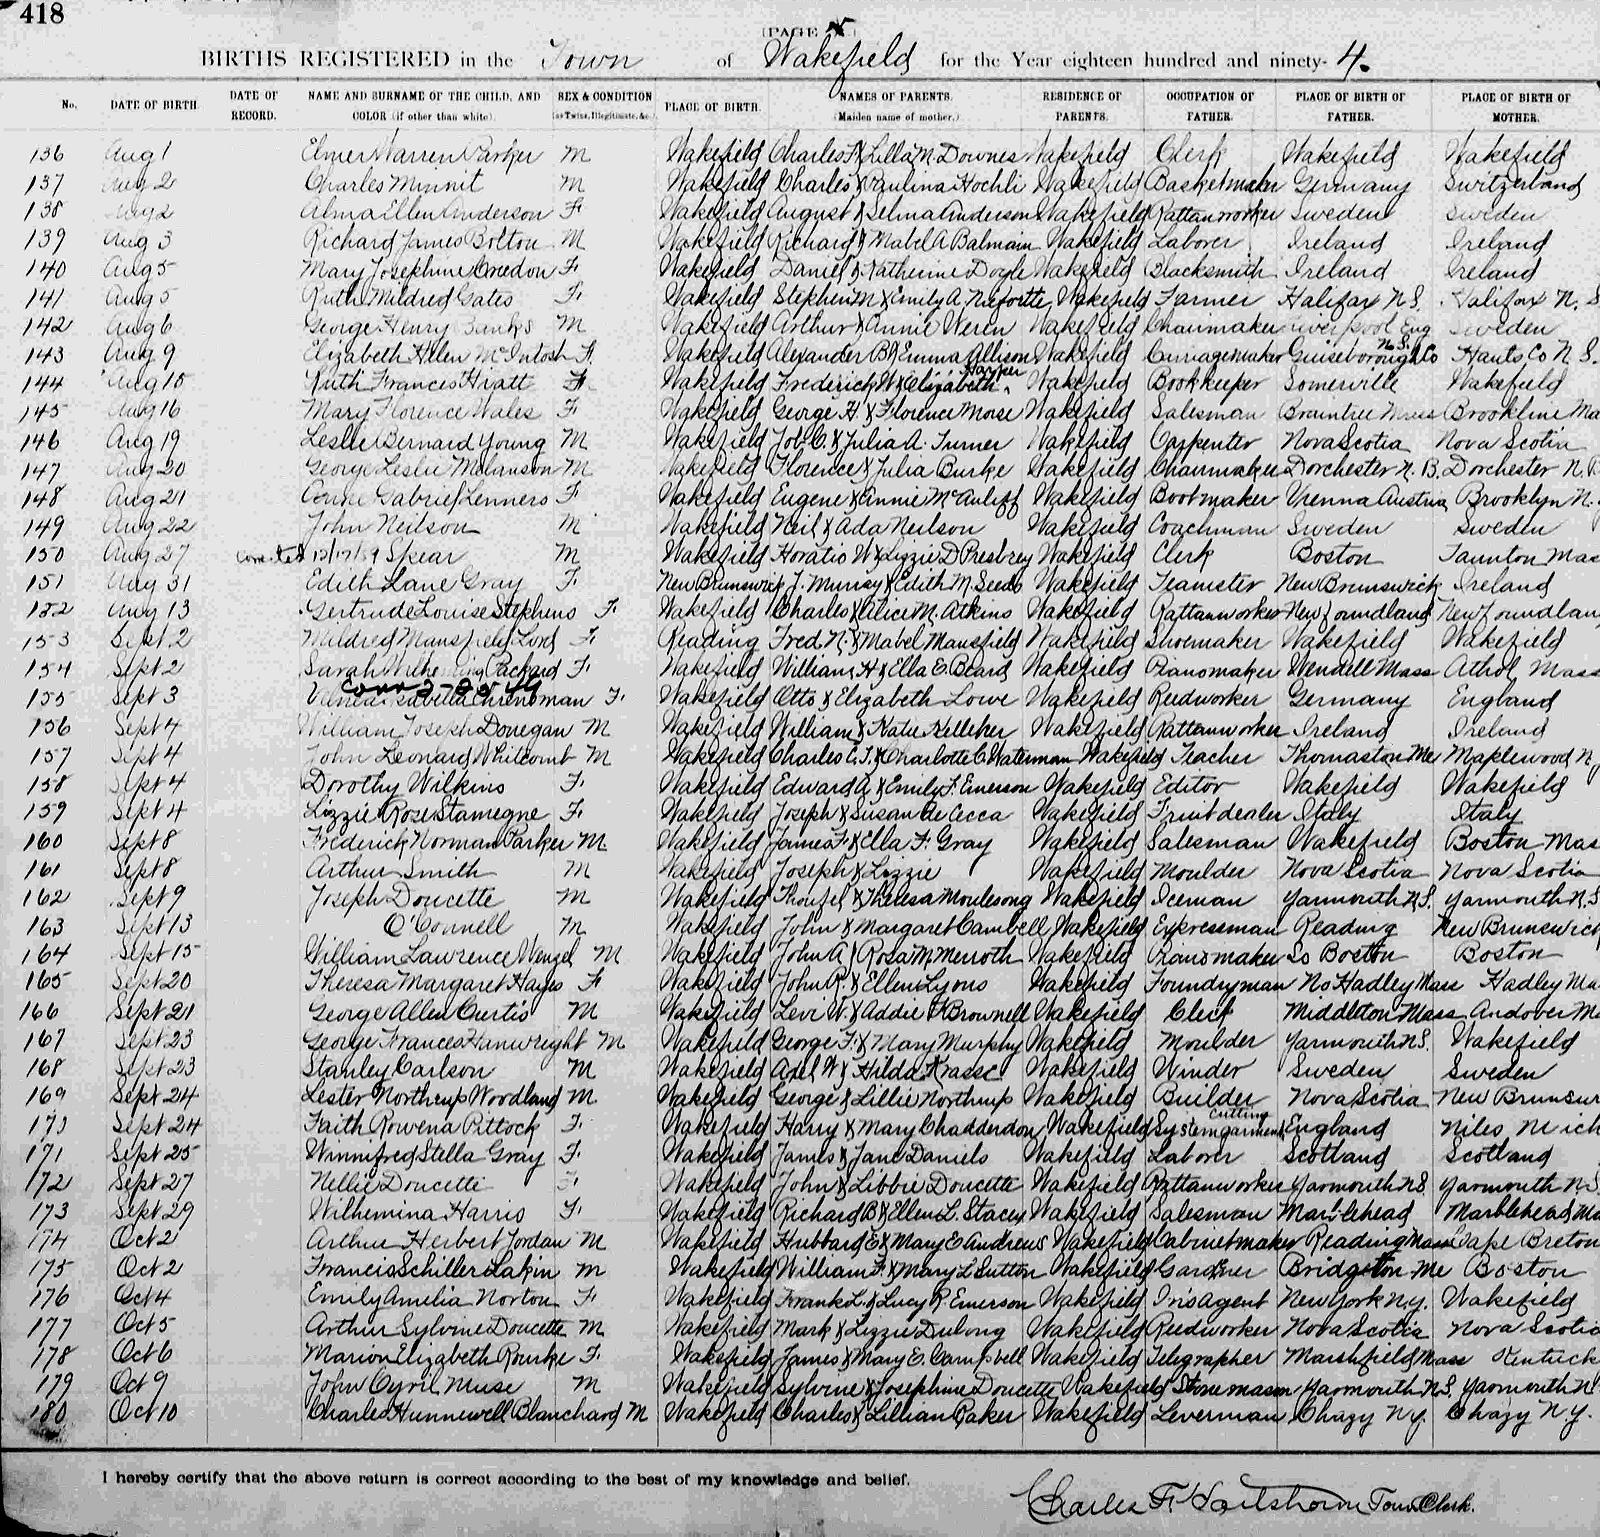 418
(PAGE X.)
BIRTHS REGISTERED in the Town of Wakefield for the Year eighteen hundred and ninety- 4.
No. DATE OF BIRTH. DATE OF RECORD. NAME AND SURNAME OF THE CHILD, AND COLOR (if other than white). SEX & CONDITION (as Twins, Illegitimate, &c.) PLACE OF BIRTH. NAMES OF PARENTS. (Maiden name of mother.) RESIDENCE OF PARENTS. OCCUPATION OF FATHER. PLACE OF BIRTH OF FATHER. PLACE OF BIRTH OF MOTHER.
136 Aug 1 Elmer Warren Parker M Wakefield Charles F & Lilla M. Downes Wakefield Clerk Wakefield Wakefield
137 Aug 2 Charles Minnit M Wakefield Charles & Paulina Hochli Wakefield Basketmaker Germany Switzerland
138 Aug 2 Alma Ellen Anderson F. Wakefield August & Selma Anderson Wakefield Rattanworker Sweden Sweden
139 Aug 3 Richard James Bolton M Wakefield Richard & Mabel A Balmain Wakefield Laborer Ireland Ireland
140 Aug 5 Mary Josephine Creedon F. Wakefield Daniel & Katherine Doyle Wakefield Blacksmith Ireland Ireland
141 Aug 5 Ruth Mildred Gates F. Wakefield Stephen M & Emily A. Wakefield Farmer Halifax N S. Halifax N. S
142 Aug 6 George Henry Banks M Wakefield Arthur & Annie Weren Wakefield Chairmaker Liverpool Eng Sweden
143 Aug 9 Elizabeth Helen McIntosh F. Wakefield Alexander B & Emma Allison Wakefield Carriagemaker Guiseborough Co N.S. Hants Co N S.
144 Aug 15 Ruth Frances Hiatt F. Wakefield Frederick W & Elizabeth Harper Wakefield Bookkeeper Somerville Wakefield
145 Aug 16 Mary Florence Wales F. Wakefield George H & Florence Morse Wakefield Salesman Braintree Mass Brookline Ma
146 Aug 19 Leslie Bernard Young M Wakefield Job C. & Julia A. Turner Wakefield Carpenter Nova Scotia Nova Scotia
147 Aug 20 George Leslie Melanson M Wakefield Florence & Julia Burke Wakefield Chairmaker Dorchester N. B. Dorchester N. B
148 Aug 21 Anne Gabriel Lenners F Wakefield Eugene & Annie McAuliff Wakefield Bootmaker Vienna Austria Brooklyn N.
149 Aug 22 John Neilson M Wakefield Neil & Ada Neilson Wakefield Coachman Sweden Sweden
150 Aug 27 Corrected 12/17/59 Spear M Wakefield Horatio W & Lizzie D Presbrey Wakefield Clerk Boston Taunton Mas
151 Aug 31 Edith Lane Gray F. New Brunswick J. Murray & Edith M. Seeds Wakefield Teamster New Brunswick Ireland
152 Aug 13 Gertrude Louise Stephens F. Wakefield Charles & Alice M. Atkins Wakefield Rattanworker Newfoundland Newfoundlan
153 Sept 2 Mildred Mansfield Lord F. Reading Fred N. & Mabel Mansfield Wakefield Shoemaker Wakefield Wakefield
154 Sept 2 Sarah Packard F. Wakefield William H & Ella E. Beard Wakefield Pianomaker Wendell Mass Athol Mass
155 Sept 3 Corr 2-25-49 Ehrensman F. Wakefield Otto & Elizabeth Lowe Wakefield Reedworker Germany England
156 Sept 4 William Joseph Donegan M Wakefield William & Katie Kelliher Wakefield Rattanworker Ireland Ireland
157 Sept 4 John Leonard Whitcomb M Wakefield Charles E. T. & Charlotte C. Waterman Wakefield Teacher Thomaston Me Maplewood N.
158 Sept 4 Dorothy Wilkins F. Wakefield Edward A & Emily F. Emerson Wakefield Editor Wakefield Wakefield
159 Sept 4 Lizzie Rose Stamegne F. Wakefield Joseph & Susan de Cecca Wakefield Fruit dealer Italy Italy
160 Sept 8 Frederick Norman Parker M. Wakefield James F. & Ella F. Gray Wakefield Salesman Wakefield Boston Mas
161 Sept 8 Arthur Smith M Wakefield Joseph & Lizzie Wakefield Moulder Nova Scotia Nova Scotia
162 Sept 9 Joseph Doucette M Wakefield & Theresa Moulesong Wakefield Iceman Yarmouth N.S. Yarmouth N.S
163 Sept 13 O'Connell M Wakefield John & Margaret Cambell Wakefield Expressman Reading New Brunswick
164 Sept 15 William Lawrence Wenzel M Wakefield John A & Rosa M. Merroth Wakefield Pianomaker So Boston Boston
165 Sept 20 Theresa Margaret Hayes F Wakefield John R. & Ellen Lyons Wakefield Foundryman No Hadley Mass Hadley Ma
166 Sept 21 George Allen Curtis M Wakefield Levi W. & Addie V Brownell Wakefield Clerk Middleton Mass Andover Ma
167 Sept 23 George Frances Hanwright M Wakefield George F. & Mary Murphy Wakefield Moulder Yarmouth N.S. Wakefield
168 Sept 23 Stanley Carlson M Wakefield Axel W & Hilda Krasse Wakefield Winder Sweden Sweden
169 Sept 24 Lester Northrup Woodland M Wakefield George & Lillie Northrup Wakefield Builder Nova Scotia New Brunsw
170 Sept 24 Faith Rowena Pittock F. Wakefield Harry & Mary Chadderdon Wakefield System garment cutting England Niles Mich
171 Sept 25 Winnifred Stella Gray F. Wakefield James & Jane Daniels Wakefield Laborer Scotland Scotland
172 Sept 27 Nellie Doucette F. Wakefield John & Libbie Doucette Wakefield Rattanworker Yarmouth N.S. Yarmouth N.S
173 Sept 29 Wilhemina Harris F. Wakefield Richard B & Ellen L. Stacey Wakefield Salesman Marblehead Marblehead Ma
174 Oct 2 Arthur Herbert Jordan M Wakefield Hubbard E & Mary E Andrews Wakefield Cabinetmaker Reading Mass Cape Breton
175 Oct 2 Francis Schiller Lakin M Wakefield William F. & Mary L Sutton Wakefield Gardner Bridgton Me Boston
176 Oct 4 Emily Amelia Norton F Wakefield Frank L. & Lucy R. Emerson Wakefield Ins Agent New York N.Y. Wakefield
177 Oct 5 Arthur Sylvine Doucette M Wakefield Mark & Lizzie Dulong Wakefield Reedworker Nova Scotia Nova Scotia
178 Oct 6 Marion Elizabeth Rourke F. Wakefield James & Mary E. Campbell Wakefield Telegrapher Marshfield Mass Kentuck
179 Oct 9 John Cyril Muse M Wakefield Sylvine & Josephine Doucette Wakefield Stone mason Yarmouth N.S. Yarmouth N
180 Oct 10 Charles Hunnewell Blanchard M Wakefield Charles & Lillian Baker Wakefield Leverman Chazy N.Y. Chazy N.Y.
I hereby certify that the above return is correct according to the best of my knowledge and belief.
Charles F. Hartshorne Town Clerk.